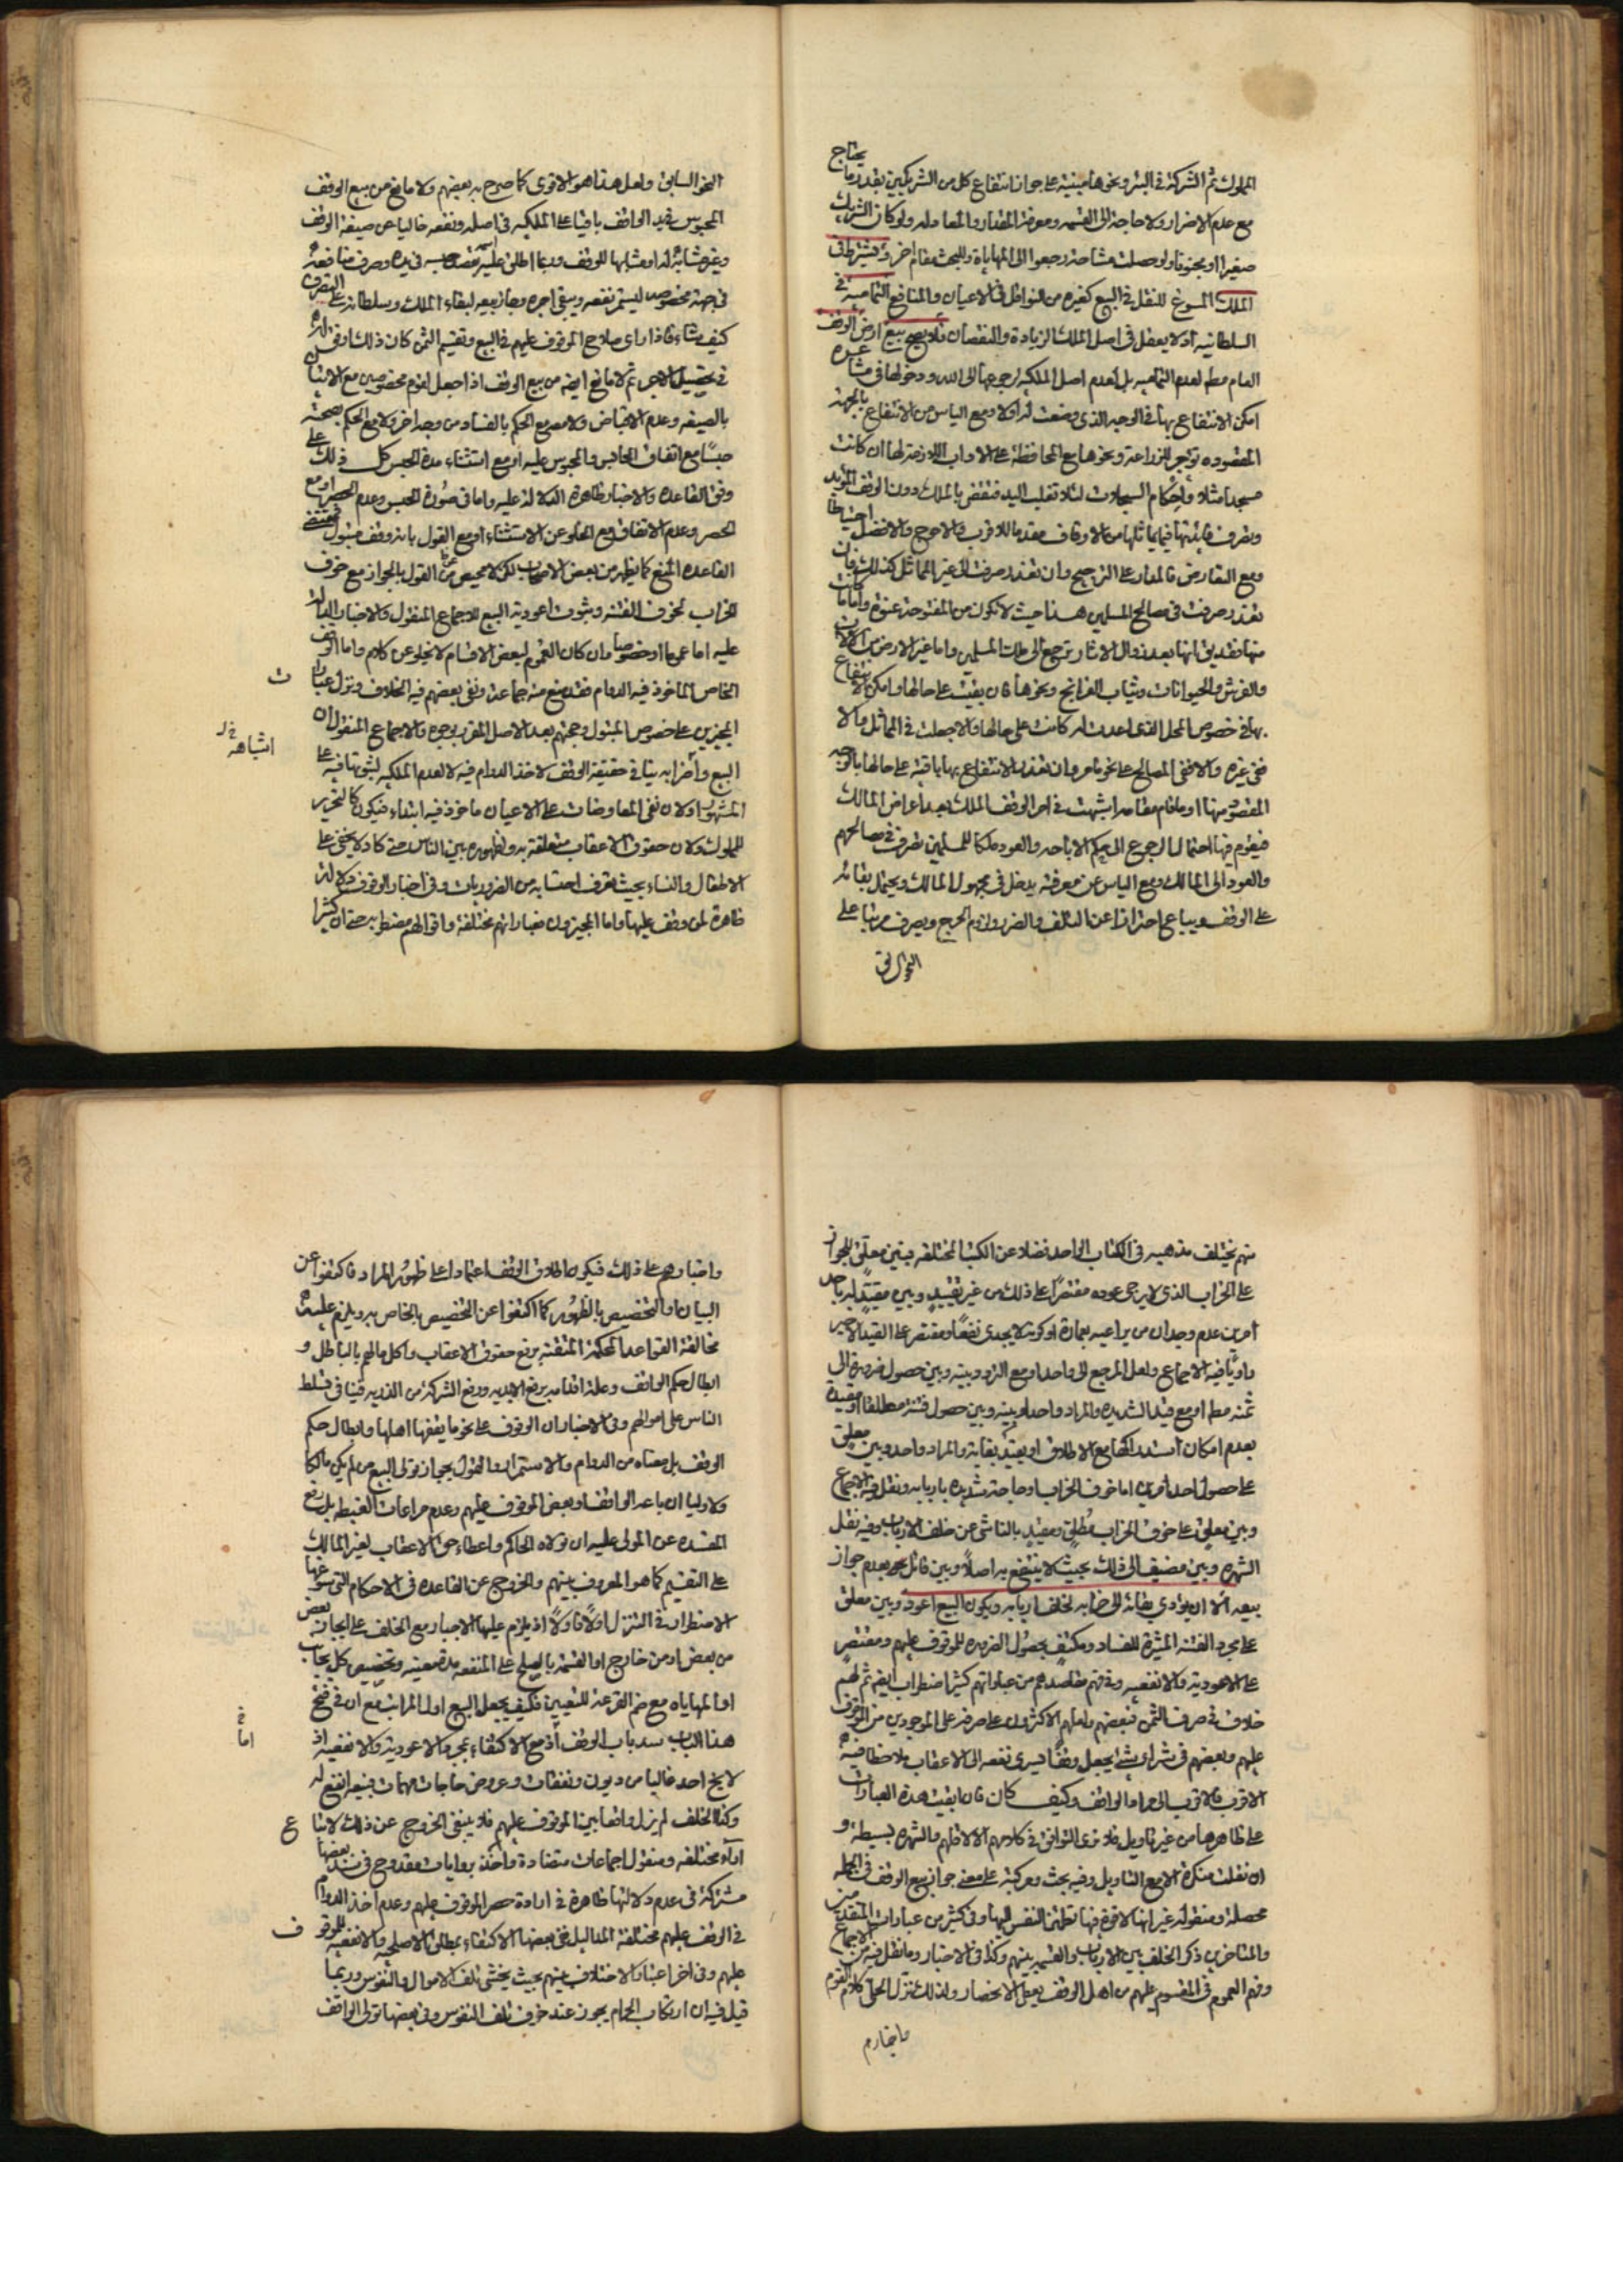 المملوك ثم الشركة في البئر ونحوها مبنية على جواز انتفاع كل من الشريكين بقدر ما يحتاج
مع عدم الاضرار ولا حاجة الى القسمه ومعرفة المقدار والمعامله ولو كان الشريك
صغيرا او مجنونا ولو حصلت مشاحة رجعوا الى المهاياة وللبحث مقام اخر ويشترط في
الملك المسوغ للنقل في البيع كغيره من النواقل في الاعيان والمنافع التماميه في
السلطانيه اذ لا يعقل في اصل الملك الزيادة والنقصان فلا يصح بيع ارض الوقف
العام مطم لعدم التماميه بل لعدم اصل الملكيه لرجوعها الى الله ودخولها في مشاعره
امكن الانتفاع بها في الوجه الذي وضعت له اولا ومع الياس من الانتفاع بالجهة
المقصوده تؤجر للزراعة ونحوها مع المحافظة على الاداب اللازمة لها ان كانت
مسجدا مثلا واحكام السجلات لئلا تغلب اليد فتقضى بالملك دون الوقف المؤبد
وتصرف فائدتها فيما يماثلها من الاوقاف مقدما للاقرب والاحوج والافضل احتياطا
ومع التعارض فالمدار على الترجيح وان تعذر صرفت الى غير المماثل كذلك فان
تعذر صرفت في مصالح المسلمين هذا حيث لا تكون من المفتوحة عنوة واما ما كانت
منها فقد يق انها بعد زوال الاثار ترجع الى ملك المسلمين واما غير الارض من الالات
والفرش والحيوانات وثياب الضرايح ونحوها فان بقيت على حالها وامكن الانتفاع
بها في خصوص المحل الذي اعدت له كانت على حالها والا جعلت في المماثل والا
ففي غيره والا ففي المصالح على نحو ما مر وان تعذر الانتفاع بها باقية على حالها بالوجه
المقصود منها او ما قام مقامه اشبهت في امر الوقف الملك بعد اعراض المالك
فيقوم فيها احتمال الرجوع الى حكم الاباحه والعود ملكا للمسلمين تصرف في مصالحهم
والعود الى المالك ومع الياس عن معرفته يدخل في مجهول المالك ويحتمل بقائه
على الوقف ويباع احترازا عن التلف والضرر ولزوم الحرج ويصرف مرتبا على
النحو السابق
النحو السابق ولعل هذا هو الاقوى كما صرح به بعضهم ولا مانع من بيع الوقف
المحبوس بقيد الواقف باقيا على الملكيه في اصله ونفعه خاليا عن صيغة الوقف
في جهة مخصوصه ليستمر نفعه ويبقى اجره وجاز بيعه لبقاء الملك وسلطانه على التصرف
كيف شاء فاذا راى صلاح الموقوف عليهم في البيع وتقسيم الثمن كان ذلك اوفق له
في تحصيل الاجر ثم لا مانع ايضه من بيع الوقف اذا جعل لقوم مخصوصين مع الاتيان
بالصيغه وعدم الاقباض ولا مع الحكم بالفساد من وجه اخر ولا مع الحكم بصحته
حبسًا مع اتفاق الحابس والمحبوس عليه او مع استثناء مدة الحبس كل ذلك على
وفق القاعده والاخبار ظاهرة الدلالة عليه واما في صورة الحبس وعدم الحصر او مع
الحصر وعدم الاتفاق ومع الخلو عن الاستثناء او مع القول بانه وقف مقبول فمقتضى
القاعده المنع كما يظهر من بعض الاصحاب لكن لا محيص عن القول بالجواز مع خوف
الخراب لخوف الفتنه وثبوت اعودية البيع للاجماع المنقول والاخبار الدالة
عليه اما عموما او خصوصا وان كان العموم لبعض الاقسام لا يخلو عن كلام واما الوقف
الخاص الماخوذ فيه الدوام فقد منع منه جماعة ونفى بعضهم فيه الخلاف ونزل عبارات
المجيزين على خصوص المبتول وحجتهم بعد الاصل المقرر بوجوه والاجماع المنقول ان
البيع واضرابه ينافي حقيقة الوقف لاخذ الدوام فيه لا لعدم الملكيه لثبوتها فيه على
المشهور اولان نفي المعاوضات على الاعيان ماخوذ فيه ابتداء فيكون كالتحرير
للمملوك ولان حقوق الاعقاب متعلقة به ولظهوره بين الناس حتى كاد لا يخفى على
الاطفال والنساء بحيث يعرف احتسابه من الضروريات وفي اخبار الوقوف دلالة
ظاهرة لمن وقف عليها واما المجيزون فعباراتهم مختلفة واقوالهم مضطربه حتى ان كثيرا
منهم يختلف مذهبه في الكتاب الواحد فضلا عن الكتب المختلفه فبين معلق للجواز
على الخراب الذي لا يرجى عوده مقتصرًا على ذلك من غير تقييد وبين مقيد له باحد
امرين عدم وجدان من يراعيه بعمارة او كونه لا يجدي نفعًا ومقتصر على القيد الاخير
راويًا فيه الاجماع ولعل المرجع الى واحد او مع التردد بينه وبين حصول ضرورة الى
ثمنه مطم او مع قيد الشديده والمراد واحد او بينه وبين حصول فتنة مطلقا او مقيدة
بعدم امكان استدراكها مع الاطلاق او بقيد بقاية والمراد واحد وبين معلق
على حصول احد امرين اما خوف الخراب او حاجة شديده باربابه ونقل فيه الاجماع
وبين معلق على خوف الخراب مطلق ومقيد بالناشي عن خلف الارباب وفيه نقل
الشهره وبين مضيف الى ذلك بحيث لا ينتفع به اصلاً وبين قائل بعدم جواز
بيعه الا ان يؤدي بقائه الى خرابه لخلف اربابه ويكون البيع اعود وبين معلق
على مجرد الفتنه المثيرة للفساد ومكتف بحصول الضرورة للموقوف عليهم ومقتصر
على الاعودية والانفعيه وفي فهم مقاصدهم من عباراتهم كثير اضطراب ايضه ثم لهم
خلاف في صرف الثمن فبعضهم ولعلهم الاكثرون على صرفه على الموجودين من الموقوف
عليهم وبعضهم في شراء شئ يجعل وقفًا يسري نفعه الى الاعقاب ملاحظا فيه
الاقرب فالاقرب الى مراد الواقف وكيف كان فان بقيت هذه العبارات
على ظاهرها من غير تاويل فلا نرى التوافق في كلامهم الا لاقلهم والشهره بسيطة و
ان نقلت منكرة الا مع التاويل وفيه بحث ومركبة على معنى جواز بيع الوقف في الجمله
محصلة ومنقوله غير انها لا قوة فيها تطمئن النفس اليها وفي كثير من عبارات المتقدمين
والمتاخرين ذكر الخلف بين الارباب والقسمه بينهم وكذا في الاخبار وما نقل فيه من الاجماع
وفهم العموم في المقسوم عليهم من اهل الوقف يعطي الانحصار ولذلك تنزل الحلي كلام القوم
واخبارهم
واخبارهم على ذلك فيكون اطلاق الوقف اعتمادا على ظهور المراد فاكتفوا عن
البيان والتخصيص بالظهور كما اكتفوا عن التخصيص بالخاص به ويلزم عليه
مخالفة القواعد المحكمة المتقنة برفع حقوق الاعقاب واكل مالهم بالباطل و
ابطال حكم الواقف وعلة اقدامه برفع الابديه ورفع الشركة من الذريه فينافي تسلط
الناس على اموالهم وفي الاخبار ان الوقوف على نحو ما يقفها اهلها وابطال حكم
الوقف بل معناه من الدوام والاستمرار والقول بجواز تولي البيع من لم يكن مالكا
ولا وليا ان باعه الواقف او بعض الموقوف عليهم وعدم مراعات الغبطه بل رفع
المفسده عن المولى عليه ان تولاه الحاكم واعطاء حق الاعقاب لغير المالك
على التقسيم كما هو المعروف بينهم والخروج عن القاعده في الاحكام التي سوغها
الاضطرار في التنزل اولًا فاولًا اذ يلزم عليها الاجبار مع الخلف على ايجار بعض
من بعض او من خارج او القسمه بالصلح على المنفعه مدة معينه وتخصيص كل بجانب
او المهاياه مع ضم القرعة للتعيين فكيف يجعل البيع اول المراتب مع ان في فتح
هذا الباب سد باب الوقف اذ مع الاكتفاء بمجرد الاعودية والانفعيه اذ
لا يخ احد غالبا من ديون ونفقات وعروض حاجات مهمات فبيعه انفع له
وكذا الخلف لم يزل واقعا بين الموقوف عليهم فلا ينبغي الخروج عن ذلك لاتباع
اراء مختلفه ومنقول اجماعات متضادة واخذ بروايات مقدوح في سند بعضها
مشتركة في عدم دلالتها ظاهرة في ارادة حصر الموقوف عليهم وعدم اخذ الدوام
في الوقف عليهم مختلفة المداليل ففي بعضها الاكتفاء بمطلق الاصلحيه والانفعيه للموقوف
عليهم وفي اخر اعتبار الاختلاف بينهم بحيث يخشى تلف الاموال والنفوس وربما
قيل فيه ان ارتكاب الحرام يجوز عند خوف تلف النفوس وفي بعضها تولى الواقف